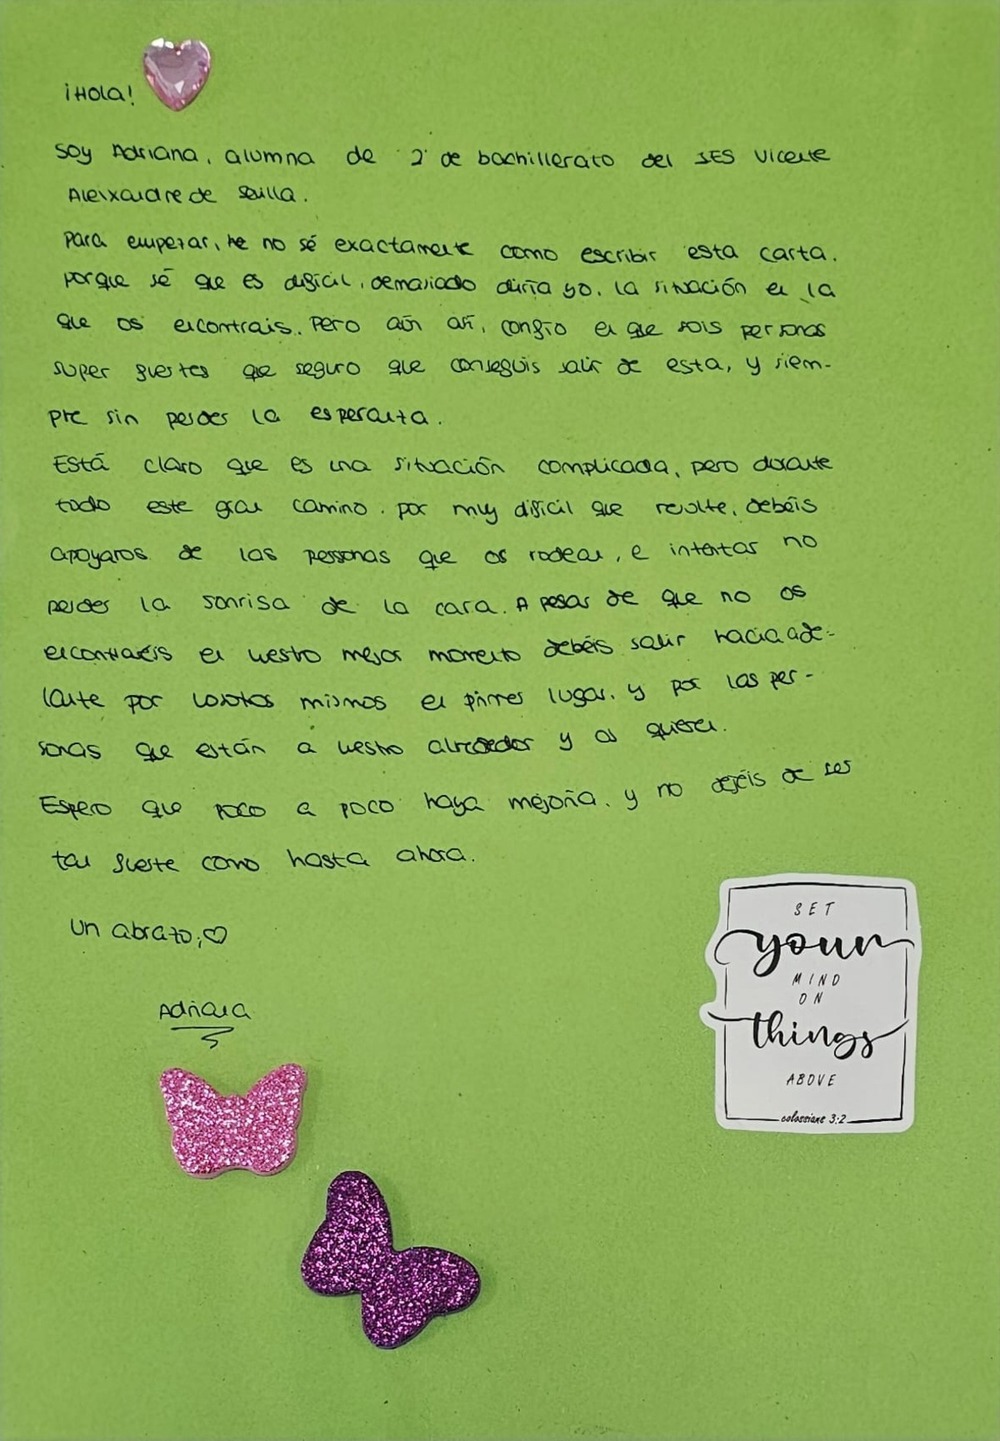 ¡Hola!
Soy Adriana, alumna de 2º de bachillerato del IES Vicente
Aleixandre de Sevilla.
Para empezar, no sé exactamente como escribir esta carta,
porque sé que es difícil, demasiado diría yo, la situación en la
que os encontrais. Pero aún así, confío en que sois personas
super fuertes que seguro que conseguis salir de esta, y siem-
pre sin perder la esperanza.
Está claro que es una situación complicada, pero durante
todo este gran camino, por muy difícil que resulte, debéis
apoyaros de las personas que os rodean, e intentar no
perder la sonrisa de la cara. A pesar de que no os
encontraéis en vuestro mejor momento debéis salir hacia ade-
lante por vosotros mismos en primer lugar, y por las per-
sonas que están a vuestro alrededor y os quieren.
Espero que poco a poco haya mejoría, y no dejéis de ser
tan fuerte como hasta ahora.
Un abrazo, ♡
Adriana
SET
your
MIND
ON
things
ABOVE
colossians 3:2